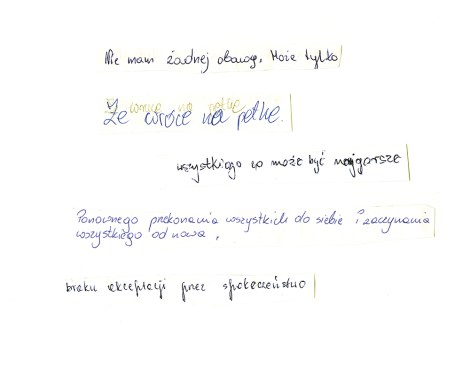 Nie mam żadnej obawy. Może tylko
że wrócę na pętlę.
wszystkiego co może być najgorsze
Ponownego przekonania wszystkich do siebie i zaczynania
wszystkiego od nowa.
braku akceptacji przez społeczeństwo